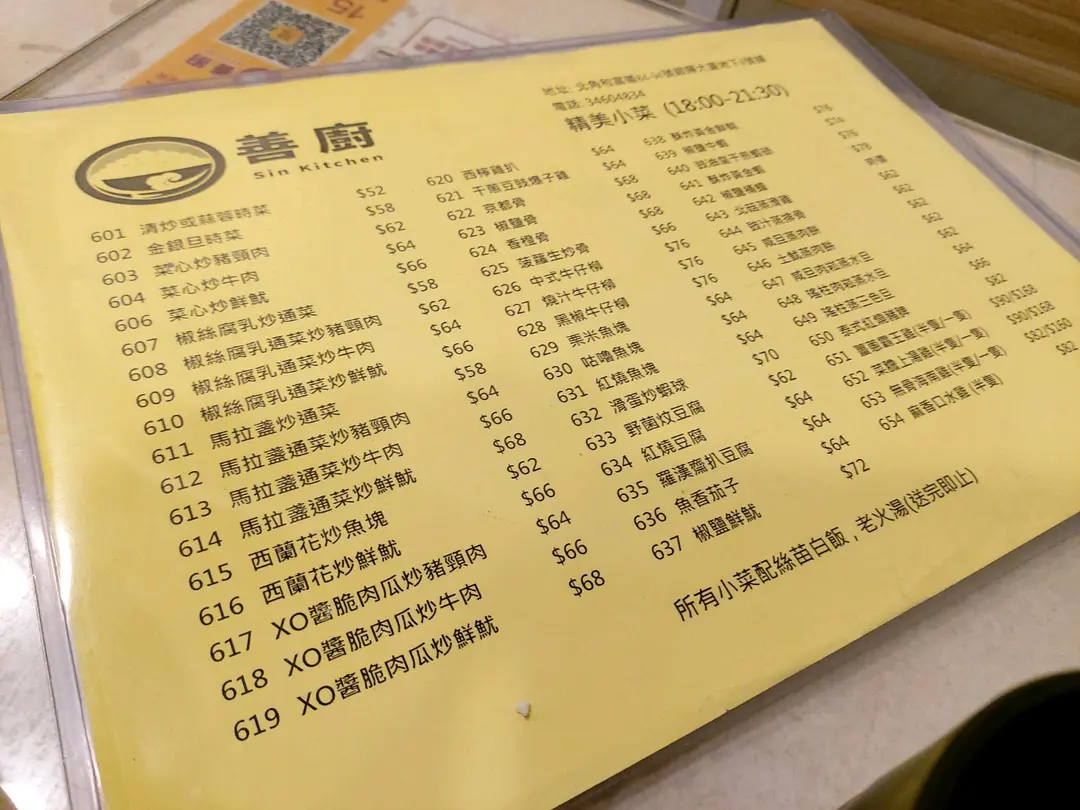 善廚
Sin Kitchen
電話: 34604834
精美小菜 (18:00-21:30)
601 清炒或蒜蓉時菜 $52
602 金銀旦時菜 $58
603 菜心炒豬頸肉 $62
604 菜心炒牛肉 $64
606 菜心炒鮮魷 $66
607 椒絲腐乳炒通菜 $58
608 椒絲腐乳通菜炒豬頸肉 $62
609 椒絲腐乳通菜炒牛肉 $64
610 椒絲腐乳通菜炒鮮魷 $66
611 馬拉盞炒通菜 $58
612 馬拉盞通菜炒豬頸肉 $64
613 馬拉盞通菜炒牛肉 $66
614 馬拉盞通菜炒鮮魷 $68
615 西蘭花炒魚塊 $62
616 西蘭花炒鮮魷 $66
617 XO醬脆肉瓜炒豬頸肉 $64
618 XO醬脆肉瓜炒牛肉 $66
619 XO醬脆肉瓜炒鮮魷 $68
620 西檸雞扒 $64
621 干蔥豆豉爆子雞 $64
622 京都骨 $68
623 椒鹽骨 $68
624 香橙骨 $68
625 菠蘿生炒骨 $66
626 中式牛仔柳 $76
627 燒汁牛仔柳 $76
628 黑椒牛仔柳 $76
629 粟米魚塊 $64
630 咕嚕魚塊 $64
631 紅燒魚塊 $64
632 滑蛋炒蝦球 $70
633 野菌炆豆腐 $62
634 紅燒豆腐 $64
635 羅漢齋扒豆腐 $64
636 魚香茄子 $64
637 椒鹽鮮魷 $72
638 酥炸黃金鮮魷 $76
639 椒鹽中蝦 $74
640 豉油皇干煎蝦碌 $76
641 酥炸黃金蝦 $78
642 椒鹽 時價
643 北菇蒸滑雞 $62
644 豉汁蒸排骨 $62
645 咸旦蒸肉餅 $62
646 土魷蒸肉餅 $62
647 咸旦肉崧蒸水旦 $62
648 瑤柱肉崧蒸水旦 $64
649 瑤柱蒸三色旦 $66
650 泰式紅燒雞髀 $82
651 薑蔥霸王雞(半隻/一隻) $90/$168
652 菜膽上湯雞(半隻/一隻) $90/$168
653 無骨海南雞(半隻/一隻) $82/$160
654 麻香口水雞 (半隻) $82
所有小菜配絲苗白飯 , 老火湯(送完即止)